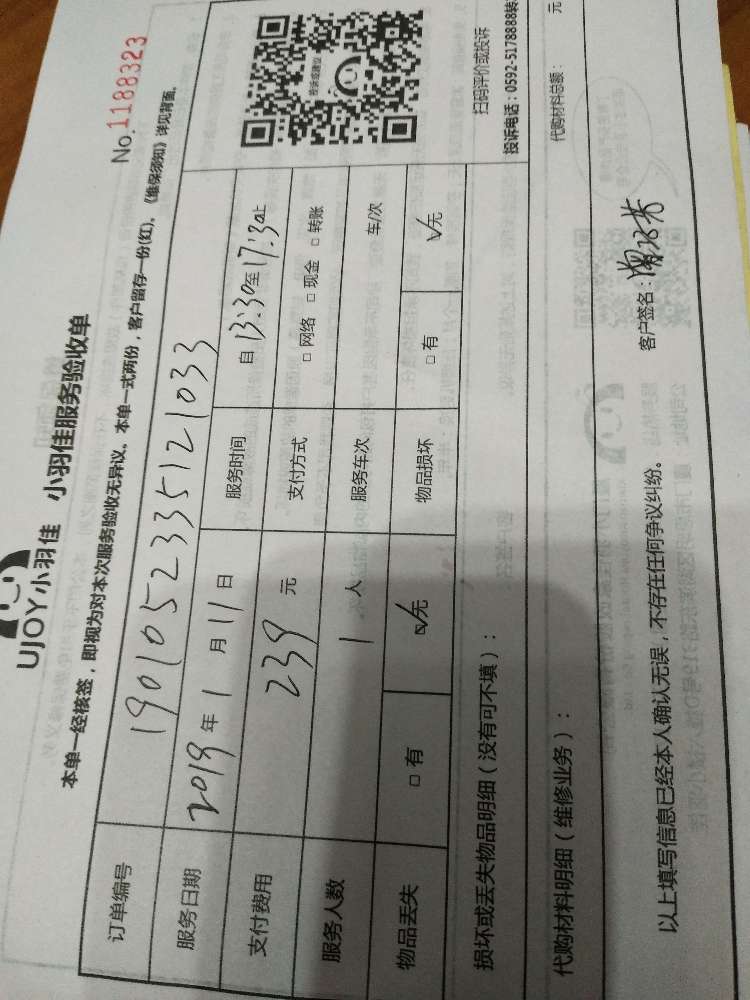 UJOY小羽佳 小羽佳服务验收单
No.1188323
本单一经核签，即视为对本次服务验收无异议。本单一式两份，客户留存一份(红)、《维保须知》详见背面。
订单编号 190105233512​1033
服务日期 2019年1月11日 服务时间 自13:30至17:30止
支付费用 239元 支付方式 □网络 □现金 □转账
服务人数 1人 服务车次 车/次
物品丢失 □有 ☑无 物品损坏 □有 ☑无
投诉或建议
扫码评价或投诉
投诉电话：0592-5178888转
损坏或丢失物品明细（没有可不填）：
代购材料明细（维修业务）： 代购材料总额： 元
以上填写信息已经本人确认无误，不存在任何争议纠纷。 客户签名：